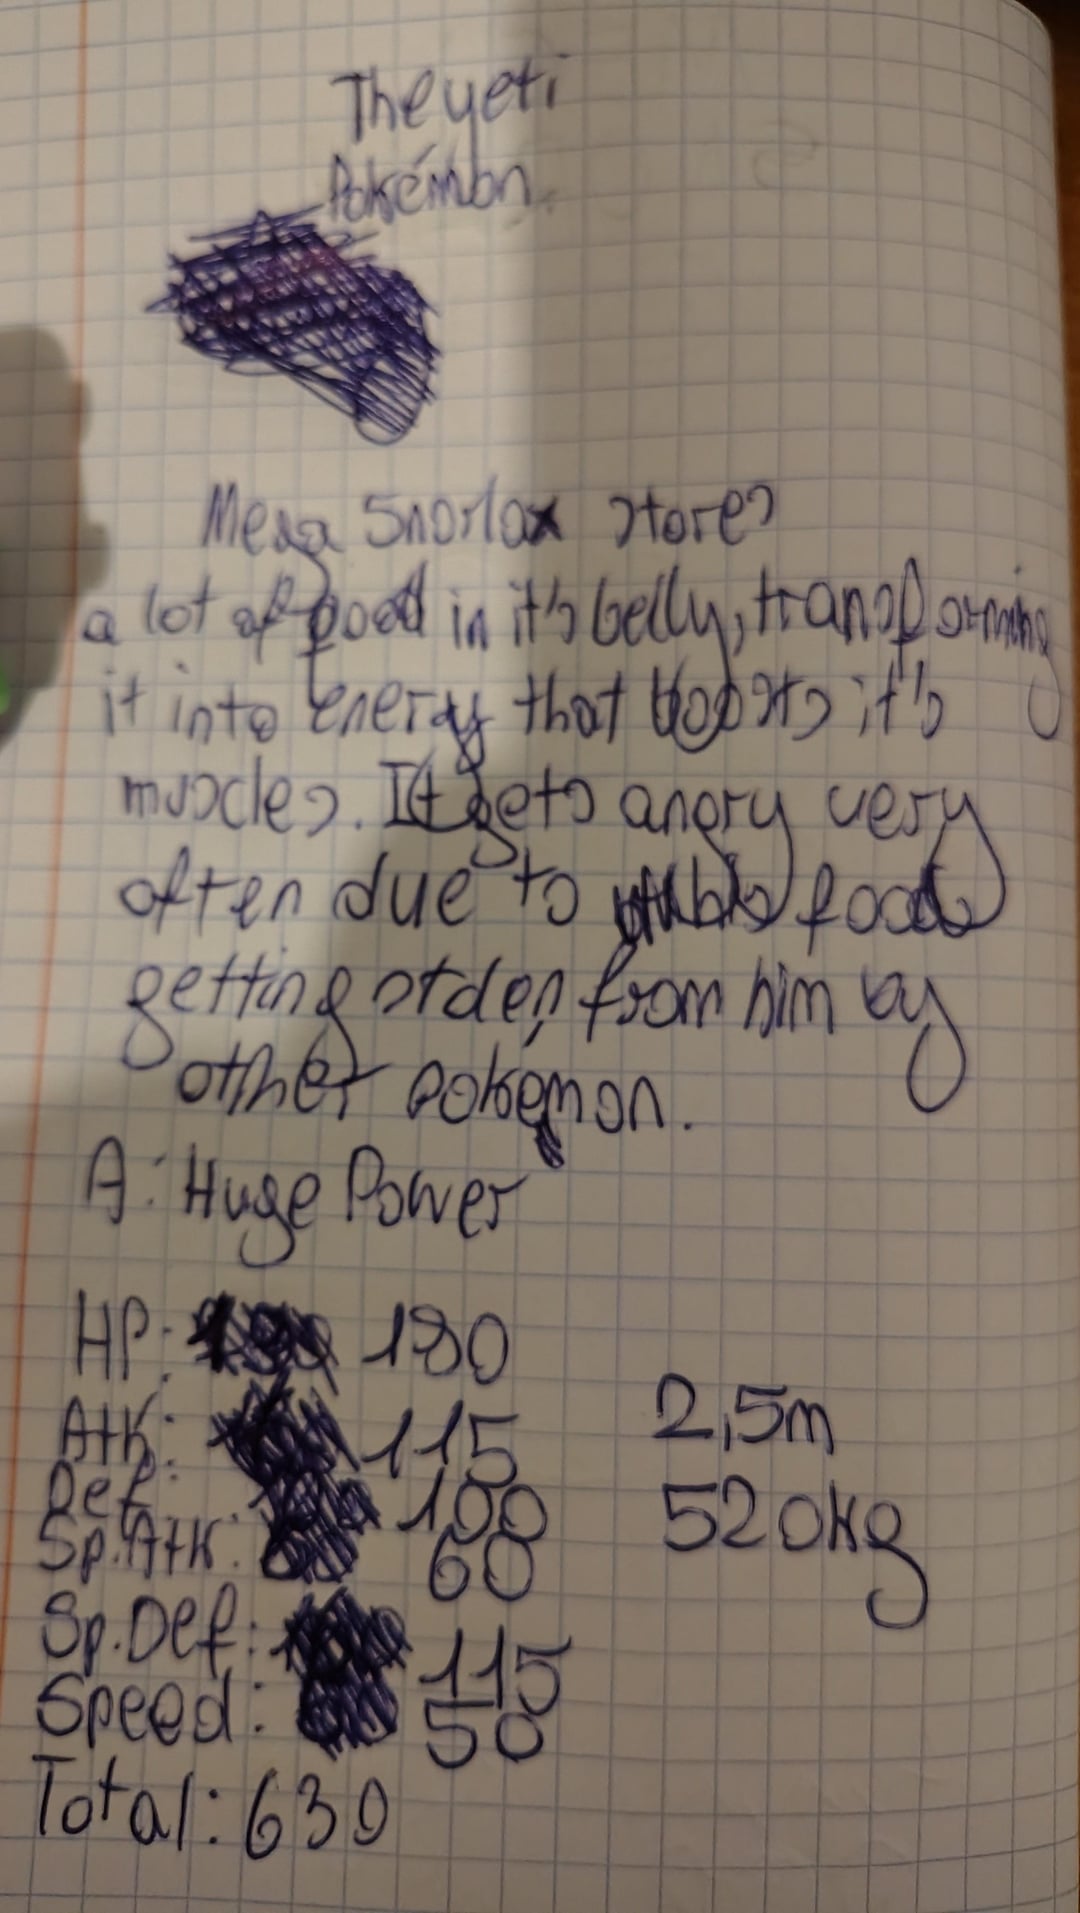 The yeti
Pokémon
Mega Snorlax stores
a lot of food in it's belly, transforming
it into energy that boosts it's
muscles. It gets angry very
often due to food
getting stolen from him by
other pokemon.
A: Huge Power
HP: 190
Atk: 115
Def: 100
Sp.Atk: 60
Sp.Def: 115
Speed: 50
Total: 630
2,5m
520kg